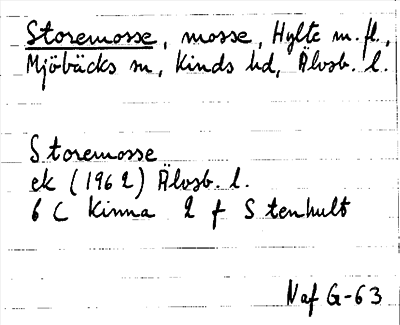 Storemosse, mosse, Hylte m. fl.,
Mjöbäcks sn, Kinds hd, Älvsb. l.
Storemosse
ek (1962) Älvsb. l.
6 C Kinna 2 f Stenhult
Naf G-63